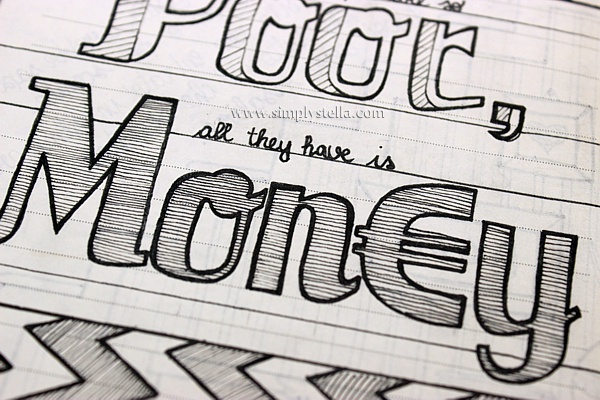 Poor,
www.simplystella.com
all they have is
Mon€y